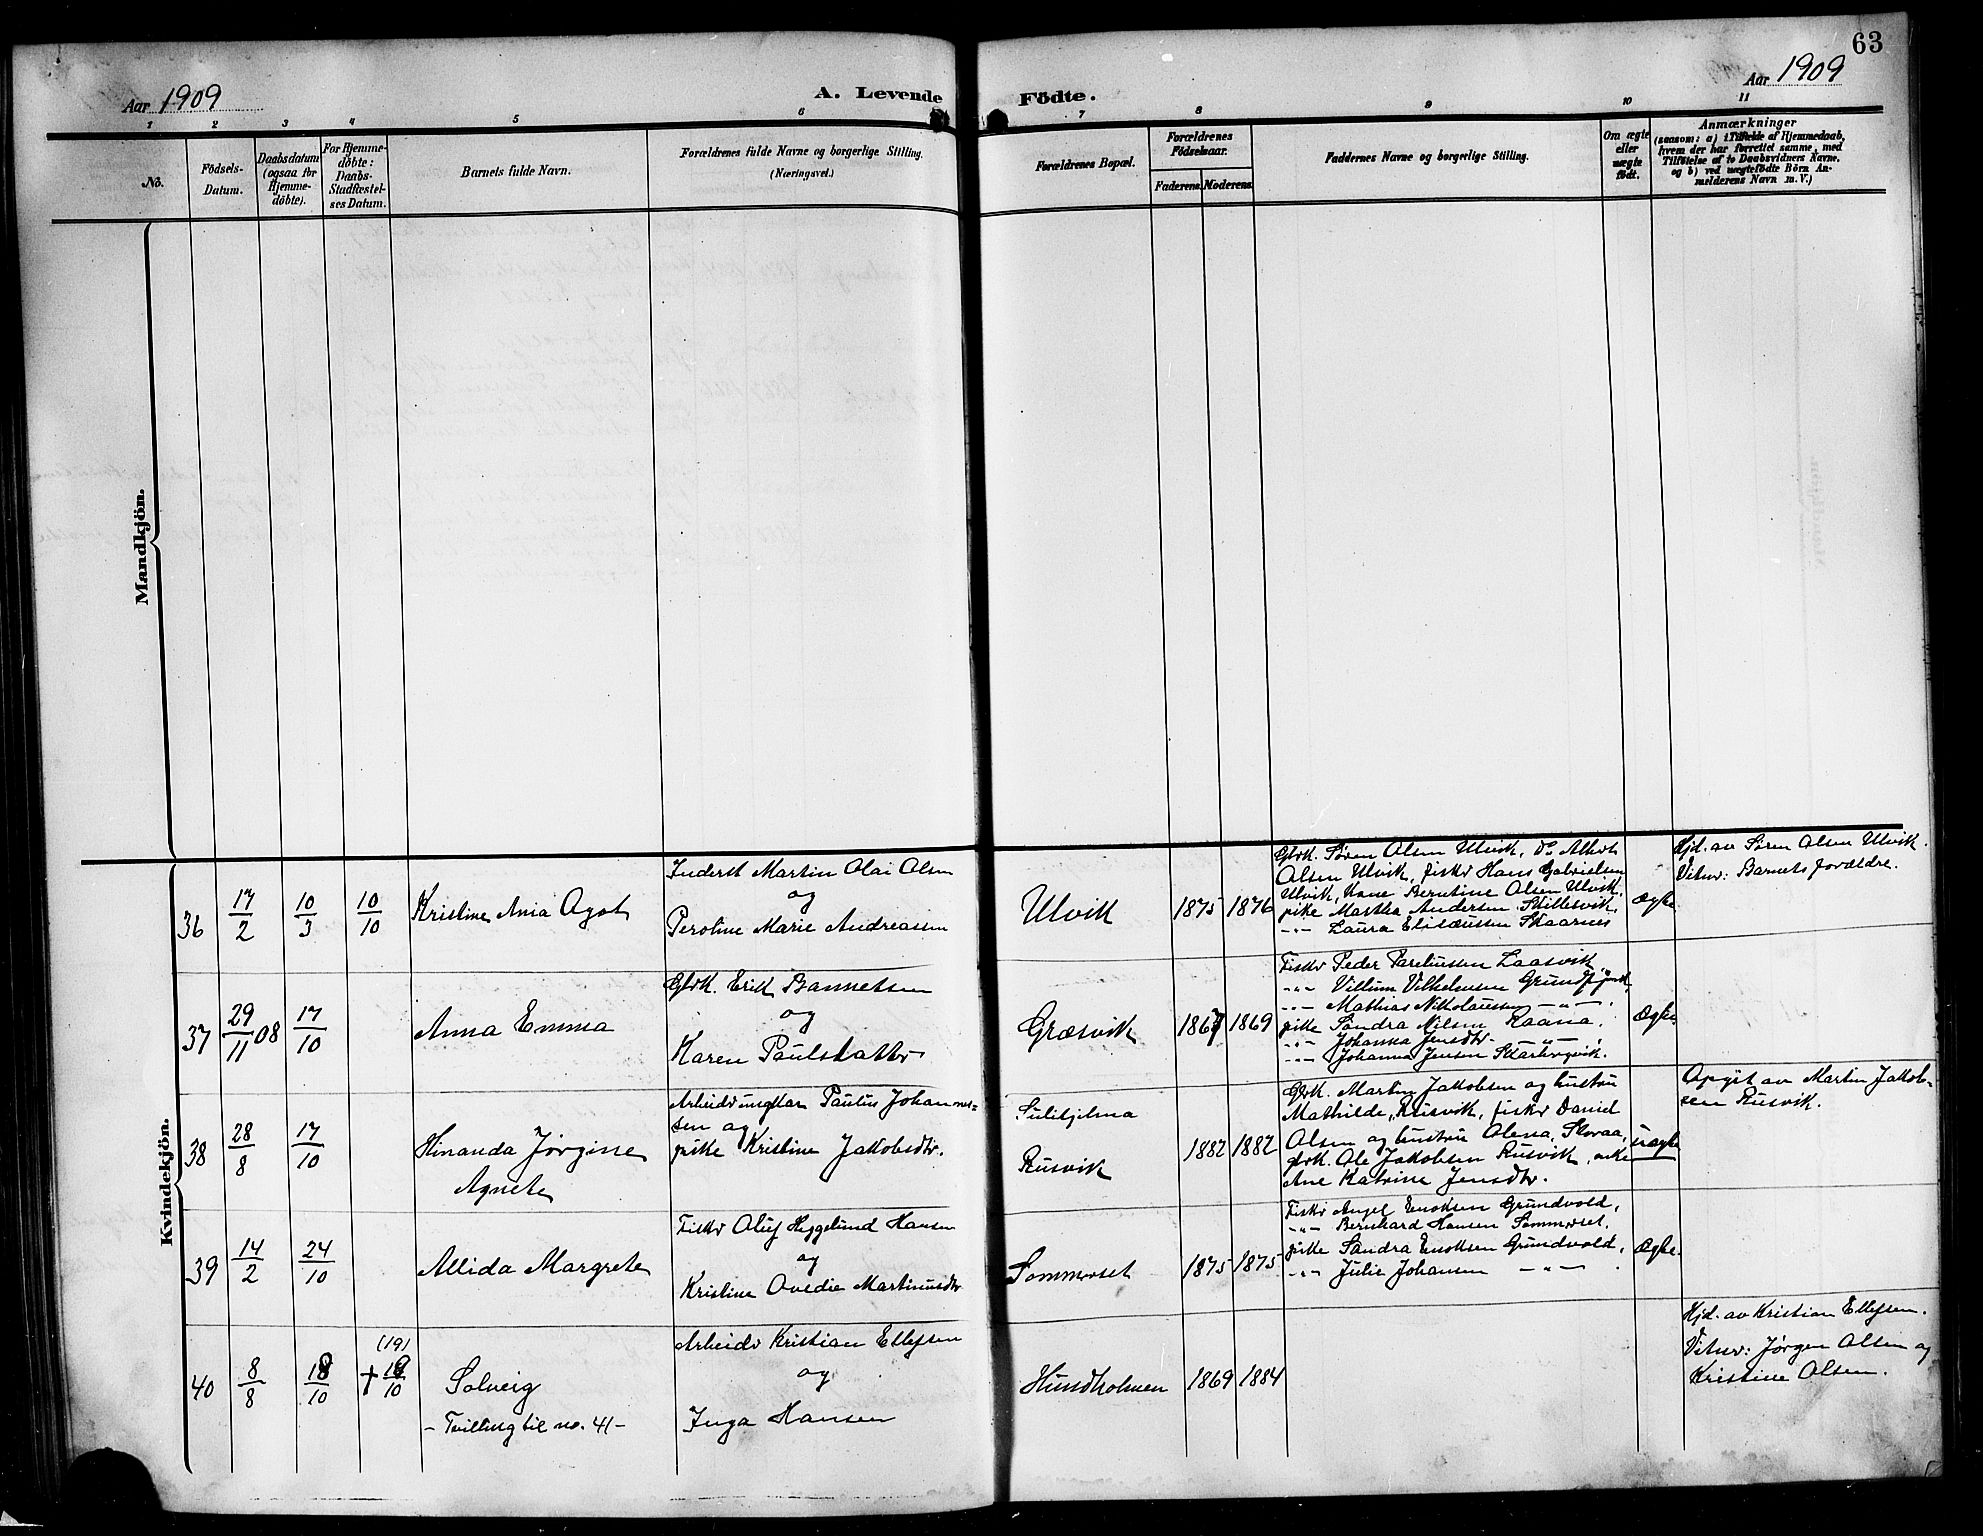 63
Aar 1909
A. Levende
Födte.
Aar 1909
1 2 3 4 5 6 7 8 9 10 11
No.
Födsels-
Datum.
Daabsdatum
(ogsaa for
Hjemme-
döbte).
For Hjemme-
döbte:
Daabs-
Stadfæstel-
ses Datum.
Barnets fulde Navn.
Forældrenes fulde Navne og borgerlige Stilling.
(Næringsvei.)
Forældrenes Bopæl.
Forældrenes
Födselsaar.
Faderens. Moderens.
Faddernes Navne og borgerlige Stilling.
Om ægte
eller
uægte
födt.
Anmærkninger
(saasom: a) i Tilfælde af Hjemmedaab,
hvem der har forrettet samme, med
Tilföielse af to Daabsvidners Navne,
og b) ved uægtefödte Börn An-
melderens Navn m. V.)
Mandkjön.
Kvindekjön.
36
17/2
10/3
10/10
Kristine Ania Agot
Inderst Martin Olai Olsen
og
Peroline Marie Andreassen
Ulvik
1875 1876
Gbrk. Søren Olsen Ulvik, Do Albert
Olsen Ulvik, fisker Hans Gabrielsen
Ulvik, Kone Berntine Olsen Ulvik,
pike Martha Andersen Skillesvik,
-"- Laura Elisæussen Skaarnes
Ægte
Hjd. av Søren Olsen Ulvik.
Vitner: Barnets forældre.
37
29/11 08
17/10
Anna Emma
Gbrk. Erik Bannetsen
og
Karen Paulsdatter
Græsvik
1867 1869
Fisker Peder Parelinssen Laasvik
-"- Villum Vilhelmsen
-"- Mathias Nikolaussen -"-
pike Sandra Nilsen Raana,
-"- Johanna Jensdtr. -"-
-"- Johanna Jensen Skarbergvik.
Ægte.
38
28/8
17/10
Hinanda Jørgine
Agnete
Arbeider ungkar Paulus Johannes-
sen og
pike Kristine Jakobsdtr.
Sulitjelma
Rusvik
1882 1882
Gbrk. Martin Jakobsen og hustru
Mathilde, Rusvik, fisker Daniel
Olsen og hustru Olena, Storaa,
gbrk. Ole Jakobsen Rusvik, enke
Ane Katrine Jensdtr.
uægte
Opgit av Martin Jakob-
sen Rusvik.
39
14/2
24/10
Allida Margrete
Fisker Oluf Heggelund Hansen
og
Kristine Ovedie Martinusdtr
Sommerset
1875 1875
Fisker Angel Enoksen Grundvold,
-"- Bernhard Hansen Sommerset,
pike Sandra Enoksen Grundvold,
-"- Julie Johansen -"- .
Ægte.
40
8/8
18/10
(19)
† 18/10
Solveig
- Tvilling til no. 41 -
Arbeider Kristian Ellefsen
og
Inga Hansen
Hundholmen
1869 1884
Hjd. av Kristian Ellefsen.
Vitner: Jørgen Olsen og
Kristine Olsen.